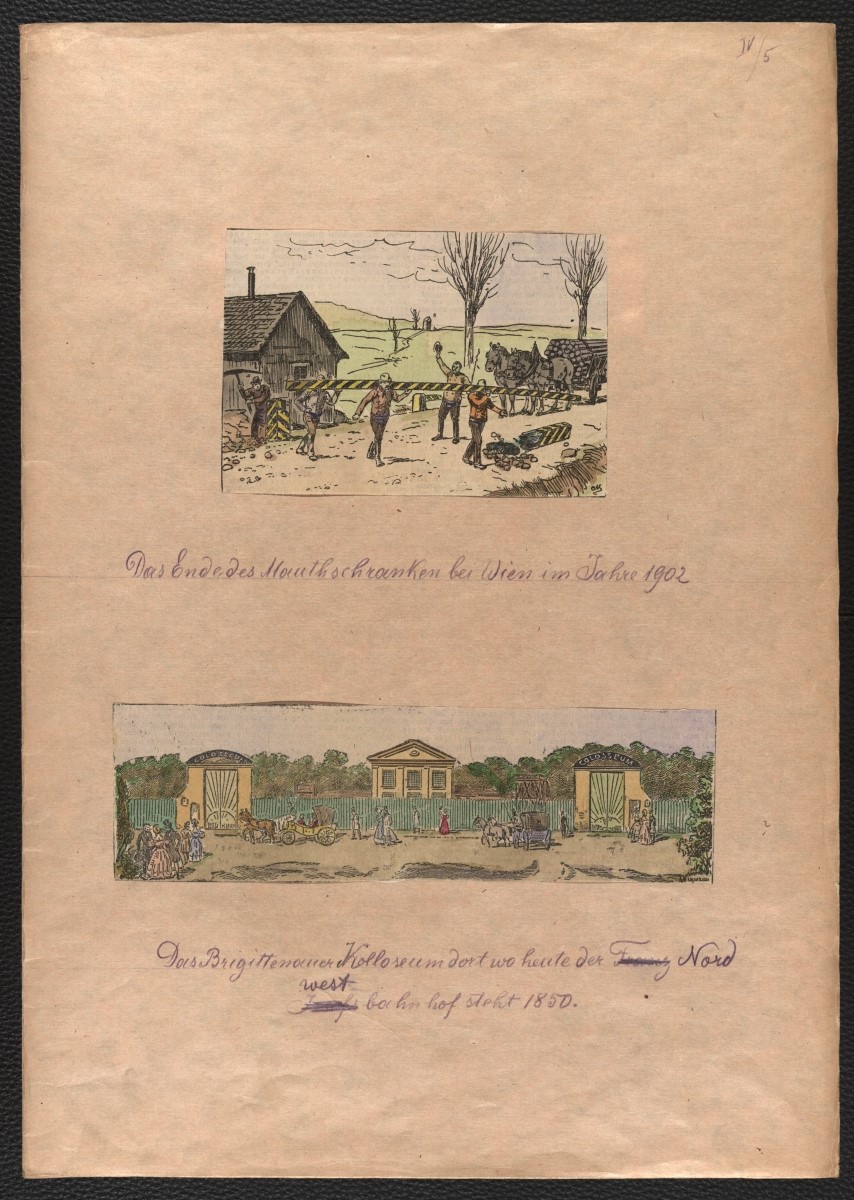 IV/5
Das Ende des Mauthschranken bei Wien im Jahre 1902
COLOSSEUM
COLOSSEUM
Das Brigittenauer Kolloseum dort wo heute der Franz Nord
west
bahnhof steht 1850.